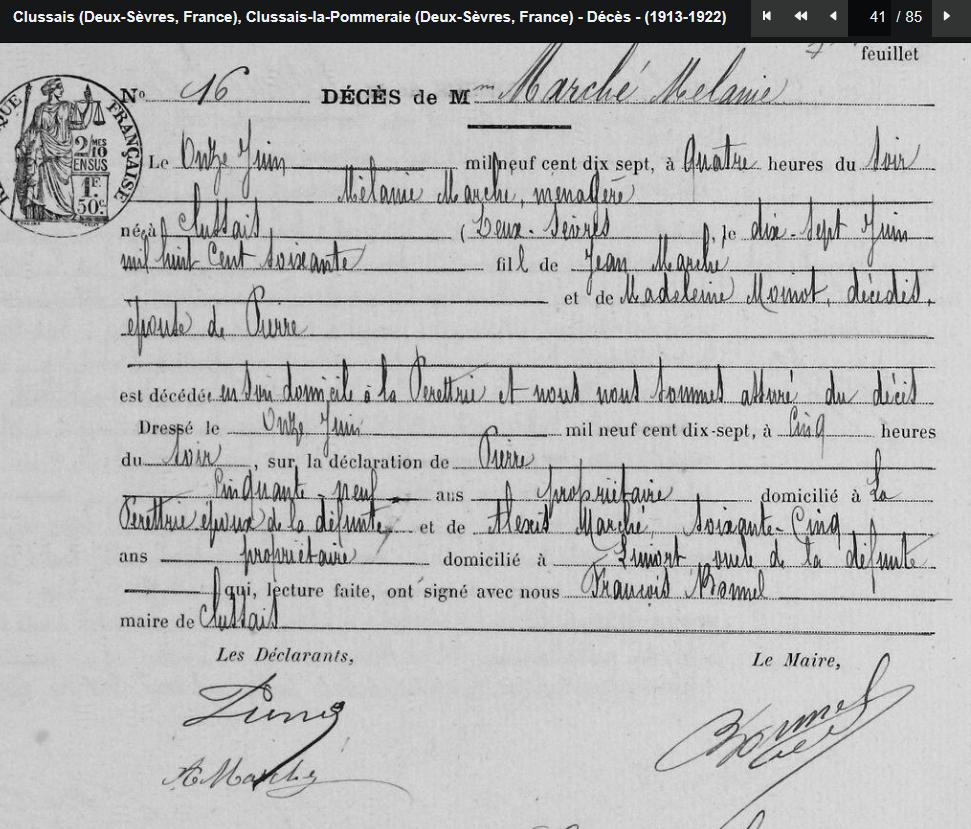 Clussais (Deux-Sèvres, France), Clussais-la-Pommeraie (Deux-Sèvres, France) - Décès - (1913-1922)
41 / 85
feuillet
RÉPUBLIQUE FRANÇAISE
2/10 MES
EN SUS
1F.
50c
No 16 DÉCÈS de Mme Marché Mélanie
Le Onze Juin mil neuf cent dix sept, à quatre heures du soir
Mélanie Marché, ménagère
née à Clussais, (Deux-Sèvres), le dix-sept Juin
mil huit cent soixante fille de Jean Marché
et de Madeleine Moinot, décédés,
épouse de Pierre
est décédée en son domicile à la Perettrie et nous nous sommes assuré du décès
Dressé le Onze Juin mil neuf cent dix-sept, à Cinq heures
du soir, sur la déclaration de Pierre
Cinquante-neuf ans propriétaire domicilié à La
Perettrie époux de la défunte, et de Alexis Marché soixante-cinq
ans propriétaire domicilié à Limort oncle de la défunte
qui, lecture faite, ont signé avec nous François Bonnel
maire de Clussais
Les Déclarants, Le Maire,
A Marché